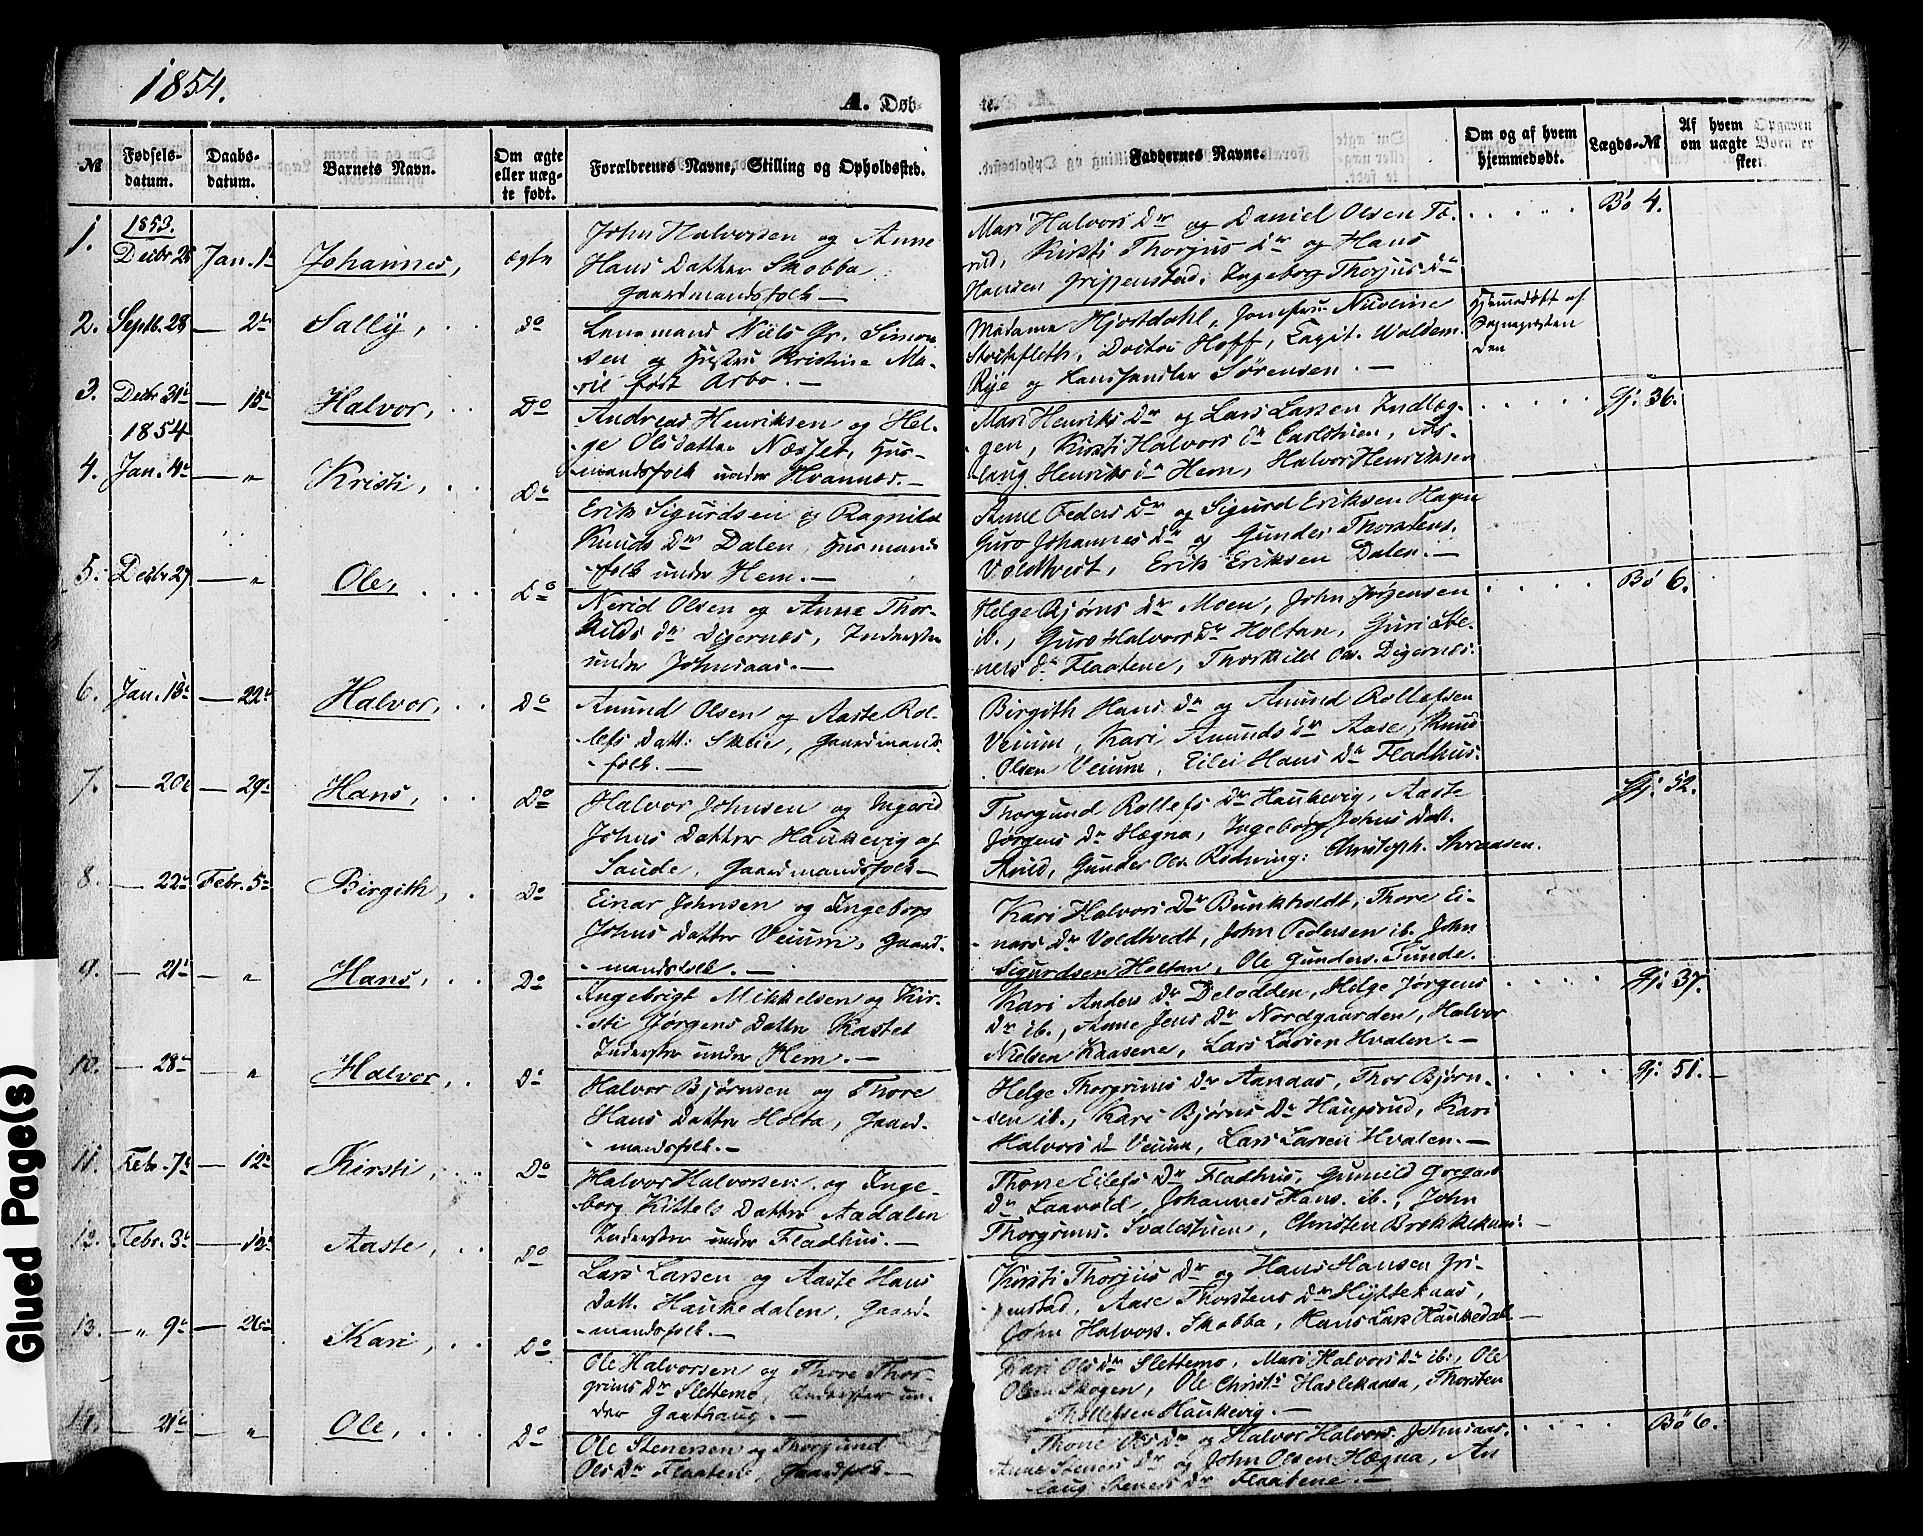 1854.
A. Døb-
te.
№
Fødsels-
datum.
Daabs-
datum.
Barnets Navn.
Om ægte
eller uæg-
te født.
Forældrenes Navne, Stilling og Opholdssted.
Faddernes Navne.
Om og af hvem
hjemmedøbt.
Lægds-№
Af hvem Opgaven
om uægte Børn er
skeet.
1. 1853. Decbr. 28 Jan. 1ste Johannes, ægte
John Halvorsen og Anne
Hans Datter Skobba
Gaardmandsfolk —
Mari Halvors Dr og Daniel Olsen To-
rud, Kirsti Thorjus Dr og Hans
Hansen Gripenstad. Ingeborg Thorjus Dr
Bø 4.
2. Septb. 28 — 2den Sally, Do
Lensmand Niels Gr. Simon-
sen og Hustru Kristine Ma-
rie født Arbo. —
Madame Hjortdahl, Jomfru Nicoline
Stockfleth, Doctor Hoff, Capit. Waldem.
Rye og Landhandler Sørensen. —
Hjemmedøbt af
Sognepræsten
3. Decbr 31te — 15de Halvor, Do
Andreas Henriksen og Hel-
ge Olsdatter Næsset, Hus-
mandsfolk under Hvannes. —
Mari Henriks Dr og Lars Larsen Indlæg-
gen, Kirsti Halvors Dr Carlstuen, As-
laug Henriks Dr Hem, Halvor Henriksen
Gj. 36.
1854
4. Jan. 4de — " Kristi, Do
Erik Sigurdsen og Ragnild
Knuds Dr Dalen, Husmands-
folk under Hem. —
Anne Peders Dr og Sigurd Eriksen Hagen
Guro Johannes Dr og Gunder Thorstens.
Voldtvedt, Erik Eriksen Dalen. —
5. Decbr 27 — " Ole, Do
Nerid Olsen og Anne Thor-
kilds Dr Digernes, Inderster
under Johnsaas. —
Helge Bjørns Dr Moen, John Jørgensen
ib., Guro Halvors Dr Holtan, Guri Ste-
ners Dr Flaatene, Thorkild Ols. Digernes.
Bø 6.
6. Jan. 13de — 22de Halvor, Do
Amund Olsen og Aaste Rol-
lefs Datt. Skeie, Gaardmands-
folk. —
Birgith Hans Dr og Amund Rollefsen
Veium, Kari Amunds Dr Aase, Knud
Olsen Veium, Eilei Hans Dr Fladhus.
7. — 20de — 29de Hans, Do
Halvor Johnsen og Ingerid
Johns Datter Haukevig af
Saude, Gaardmandsfolk —
Thorgund Rollefs Dr Haukevig, Aaste
Jørgens Dr Hægna, Ingeborg Johns Datt.
Gunder Ols. Rodning: Christoph.
Gj. 52.
8. — 22de Febr. 5te Birgith, Do
Einar Johnsen og Ingeborg
Johns Datter Veium, Gaard-
mandsfolk. —
Kari Halvors Dr Bunkholdt, Thore Ei-
nars Dr Voldtvedt, John Pedersen ib. John
Sigurdsen Holtan, Ole Gunders. Tunde.
9. — 21de — " Hans, Do
Ingebrigt Mikkelsen og Kir-
sti Jørgens Datter Kastet
Inderster under Hem. —
Kari Anders Dr Delodden, Helge Jørgens
Dr ib., Anne Jens Dr Nordgaarden, Halvor
Nielsen Kaasene, Lars Larsen Hvalen. —
Gj. 37.
10. — 28de — " Halvor, Do
Halvor Bjørnsen og Thore
Hans Datter Holta, Gaard-
mandsfolk —
Helge Thorgrims Dr Aandaas, Thor Bjørn-
sen ib., Kari Bjørns Dr Haugsrud, Kari
Halvors Dr Veium, Lars Larsen Hvalen. —
Gj. 51.
11. Febr. 7de — 12de Kirsti, Do
Halvor Halvorsen og Inge-
borg Kittels Datter Aadalen
Inderster under Fladhus. —
Thone Eilefs Dr Fladhus, Gunild Gregars
Dr Laavold, Johannes Hans. ib., John
Thorgrims. Svalestuen, Christen Brekkeknni: —
12. Febr. 3de — 12de Aaste, Do
Lars Larsen og Aaste Hans
Datt. Haukedalen, Gaard-
mandsfolk. —
Kirsti Thorjus Dr og Hans Hansen Gri-
penstad, Aase Thorstens Dr Hytteknas,
John Halvors. Skobba, Hans Lars. Haukedal —
13. — " 9de — 26de Kari, Do
Ole Halvorsen og Thore Thor-
grims Dr Slettemo, Inderster un-
der Gaathaug. —
Kari Ols Dr Slettemo, Mari Halvors Dr ib:, Ole
Olsen Skogen, Ole Christs Haslekaasa, Thorsten
Thollefsen Haukevig. —
14. — 21de — " Ole, Do
Ole Stenersen og Thorgund
Ols Dr Flaatene, Gaardfolk —
Thone Ols Dr og Halvor Halvors. Johnsaas.
Anne Steners Dr og John Olsen Hægna, As-
laug Steners Dr Flaatene. —
Bø 6.
Glued Page(s)